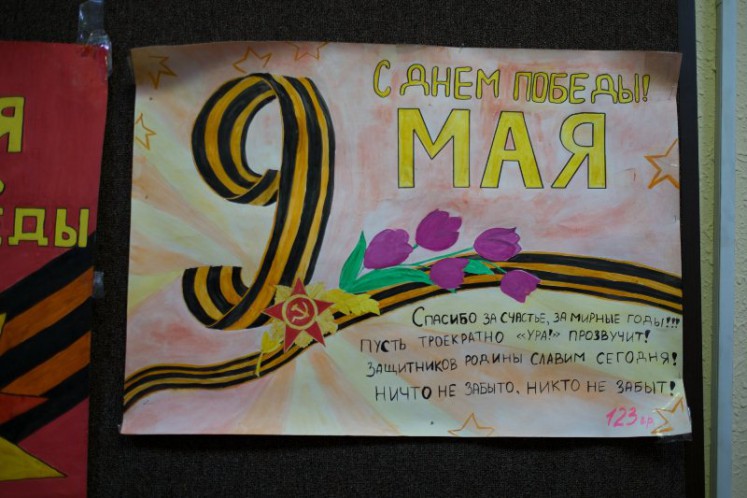 Я
ЕДЫ
9
С ДНЕМ ПОБЕДЫ!
МАЯ
СПАСИБО ЗА СЧАСТЬЕ, ЗА МИРНЫЕ ГОДЫ!!!
ПУСТЬ ТРОЕКРАТНО «УРА!» ПРОЗВУЧИТ!
ЗАЩИТНИКОВ РОДИНЫ СЛАВИМ СЕГОДНЯ!
НИЧТО НЕ ЗАБЫТО, НИКТО НЕ ЗАБЫТ!
123 гр.